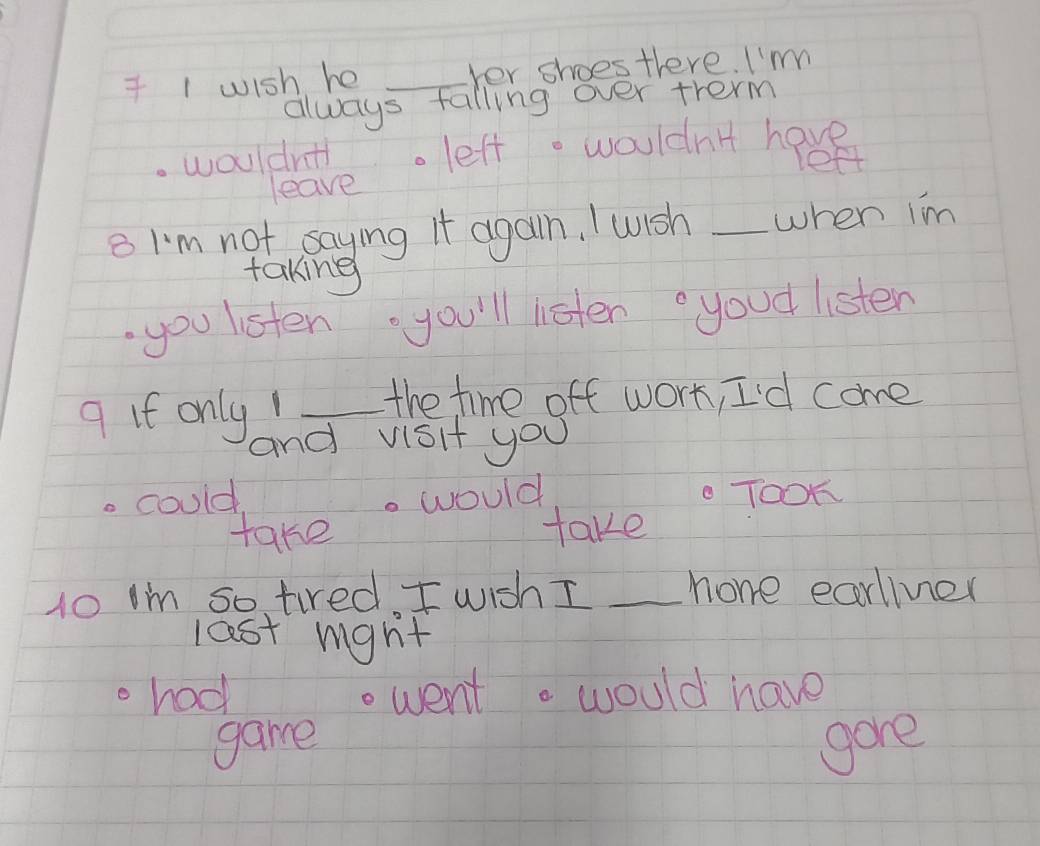 7 I wish he ___ her shoes there. I'm
always falling over them
• wouldn't • left • wouldn't have
leave left
8 I'm not saying it again, I wish ___ when i'm
taking
• you listen • you'll listen • youd listen
9 if only I ___ the time off work, I'd come
and visit you
• could • would • Took
take take
10 Im so tired. I wish I ___ home earliner
last might
• had • went • would have
game gone